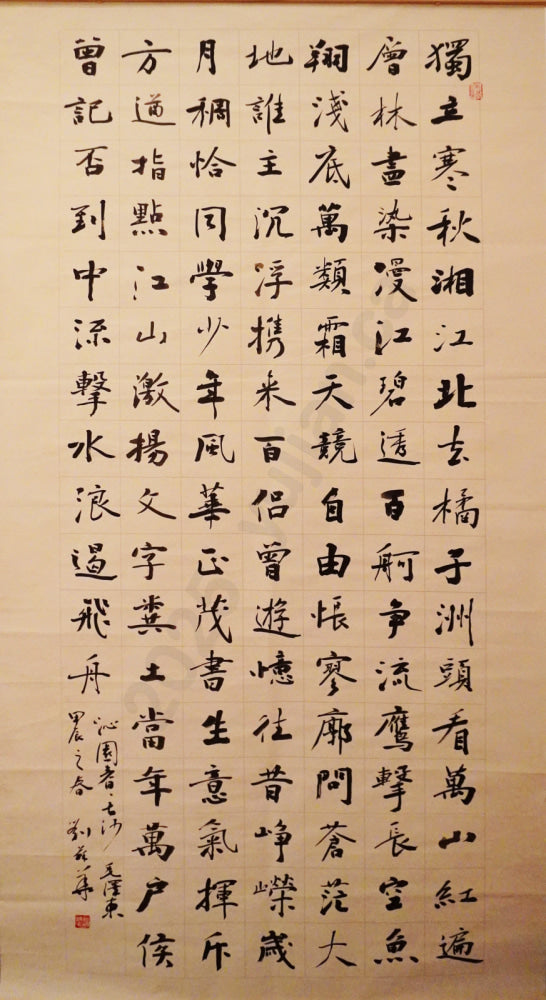 獨立寒秋湘江北去橘子洲頭看萬山紅遍
層林盡染漫江碧透百舸争流鷹擊長空魚
翔淺底萬類霜天競自由悵寥廓問蒼茫大
地誰主沉浮携来百侣曾遊憶往昔崢嶸歲
月稠恰同學少年風華正茂書生意氣揮斥
方遒指點江山激揚文字糞土當年萬户侯
曾記否到中流擊水浪遏飛舟
沁園春·長沙 毛澤東
甲辰之春 劉